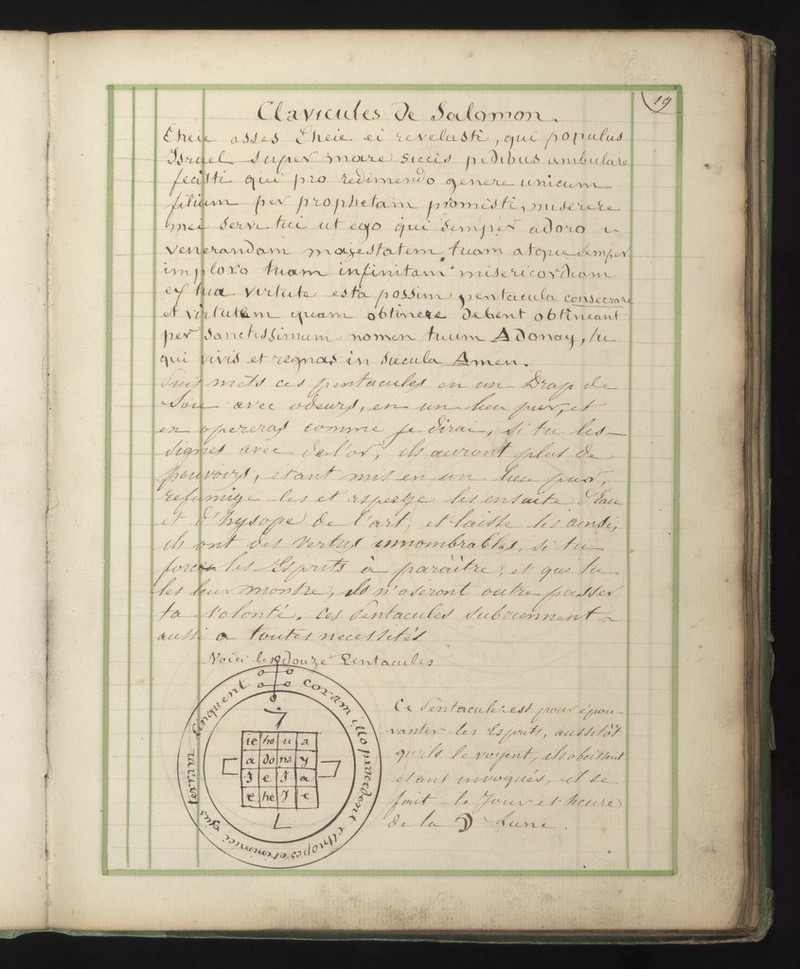 19
Clavicules De Salomon.
Eheie asses Eheie ei revelasti, qui populus
Israel super mare siccis pedibus ambulare
fecisti qui pro redimendo genere unicum
filium per prophetam promisti, miserere
mei servi tui ut ego qui semper adoro
venerandam majestatem tuam atque semper
imploro tuam infinitam misericordiam
ex tua virtute esta possim pentacula consecrare
et virtutem quam obtinere debent obtineant
per sanctissimum nomen tuum Adonay, tu
qui vivis et regnas in sæcula Amen.
Puis mets ces pentacules en un Drap de
Soie avec odeurs, en un lieu pur, et
en opereras comme je dirai, si tu les
signes avec de l'or, ils auront plus de
pouvoirs, étant mis en un lieu pur,
refumige les et asperge les ensuite d'Eau
et d'hysope de l'art, et laisse les ainsi,
ils ont des vertus innombrables, si tu
forces les Esprits à paraître, et que tu
les leur montre, ils n'oseront outre passer
ta volonté. ces Pentacules subviennent
aussi a toutes necessités
Voici les Douze Pentacules
coram illo procedent ethiopes et inimici ejus terram linquent
ie ho u a
a do na y
I e I a
e he J e
Ce Pentacule est pour épou-
vanter les Esprits, aussitôt
qu'ils le voyent, ils obeissent
etant invoqués, il se
fait le Jour et heure
de la ☽ Lune.